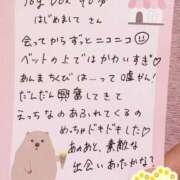 はじめまして さん
会ってからずっとニコニコ
ベットの上ではかわいすぎ♡
あんまちくびは…って口癖が
だんだん興奮してきて
えっちなのあふれてくるの
めちゃドキドキした♡
あのあと、素敵な
出会いあったかな?